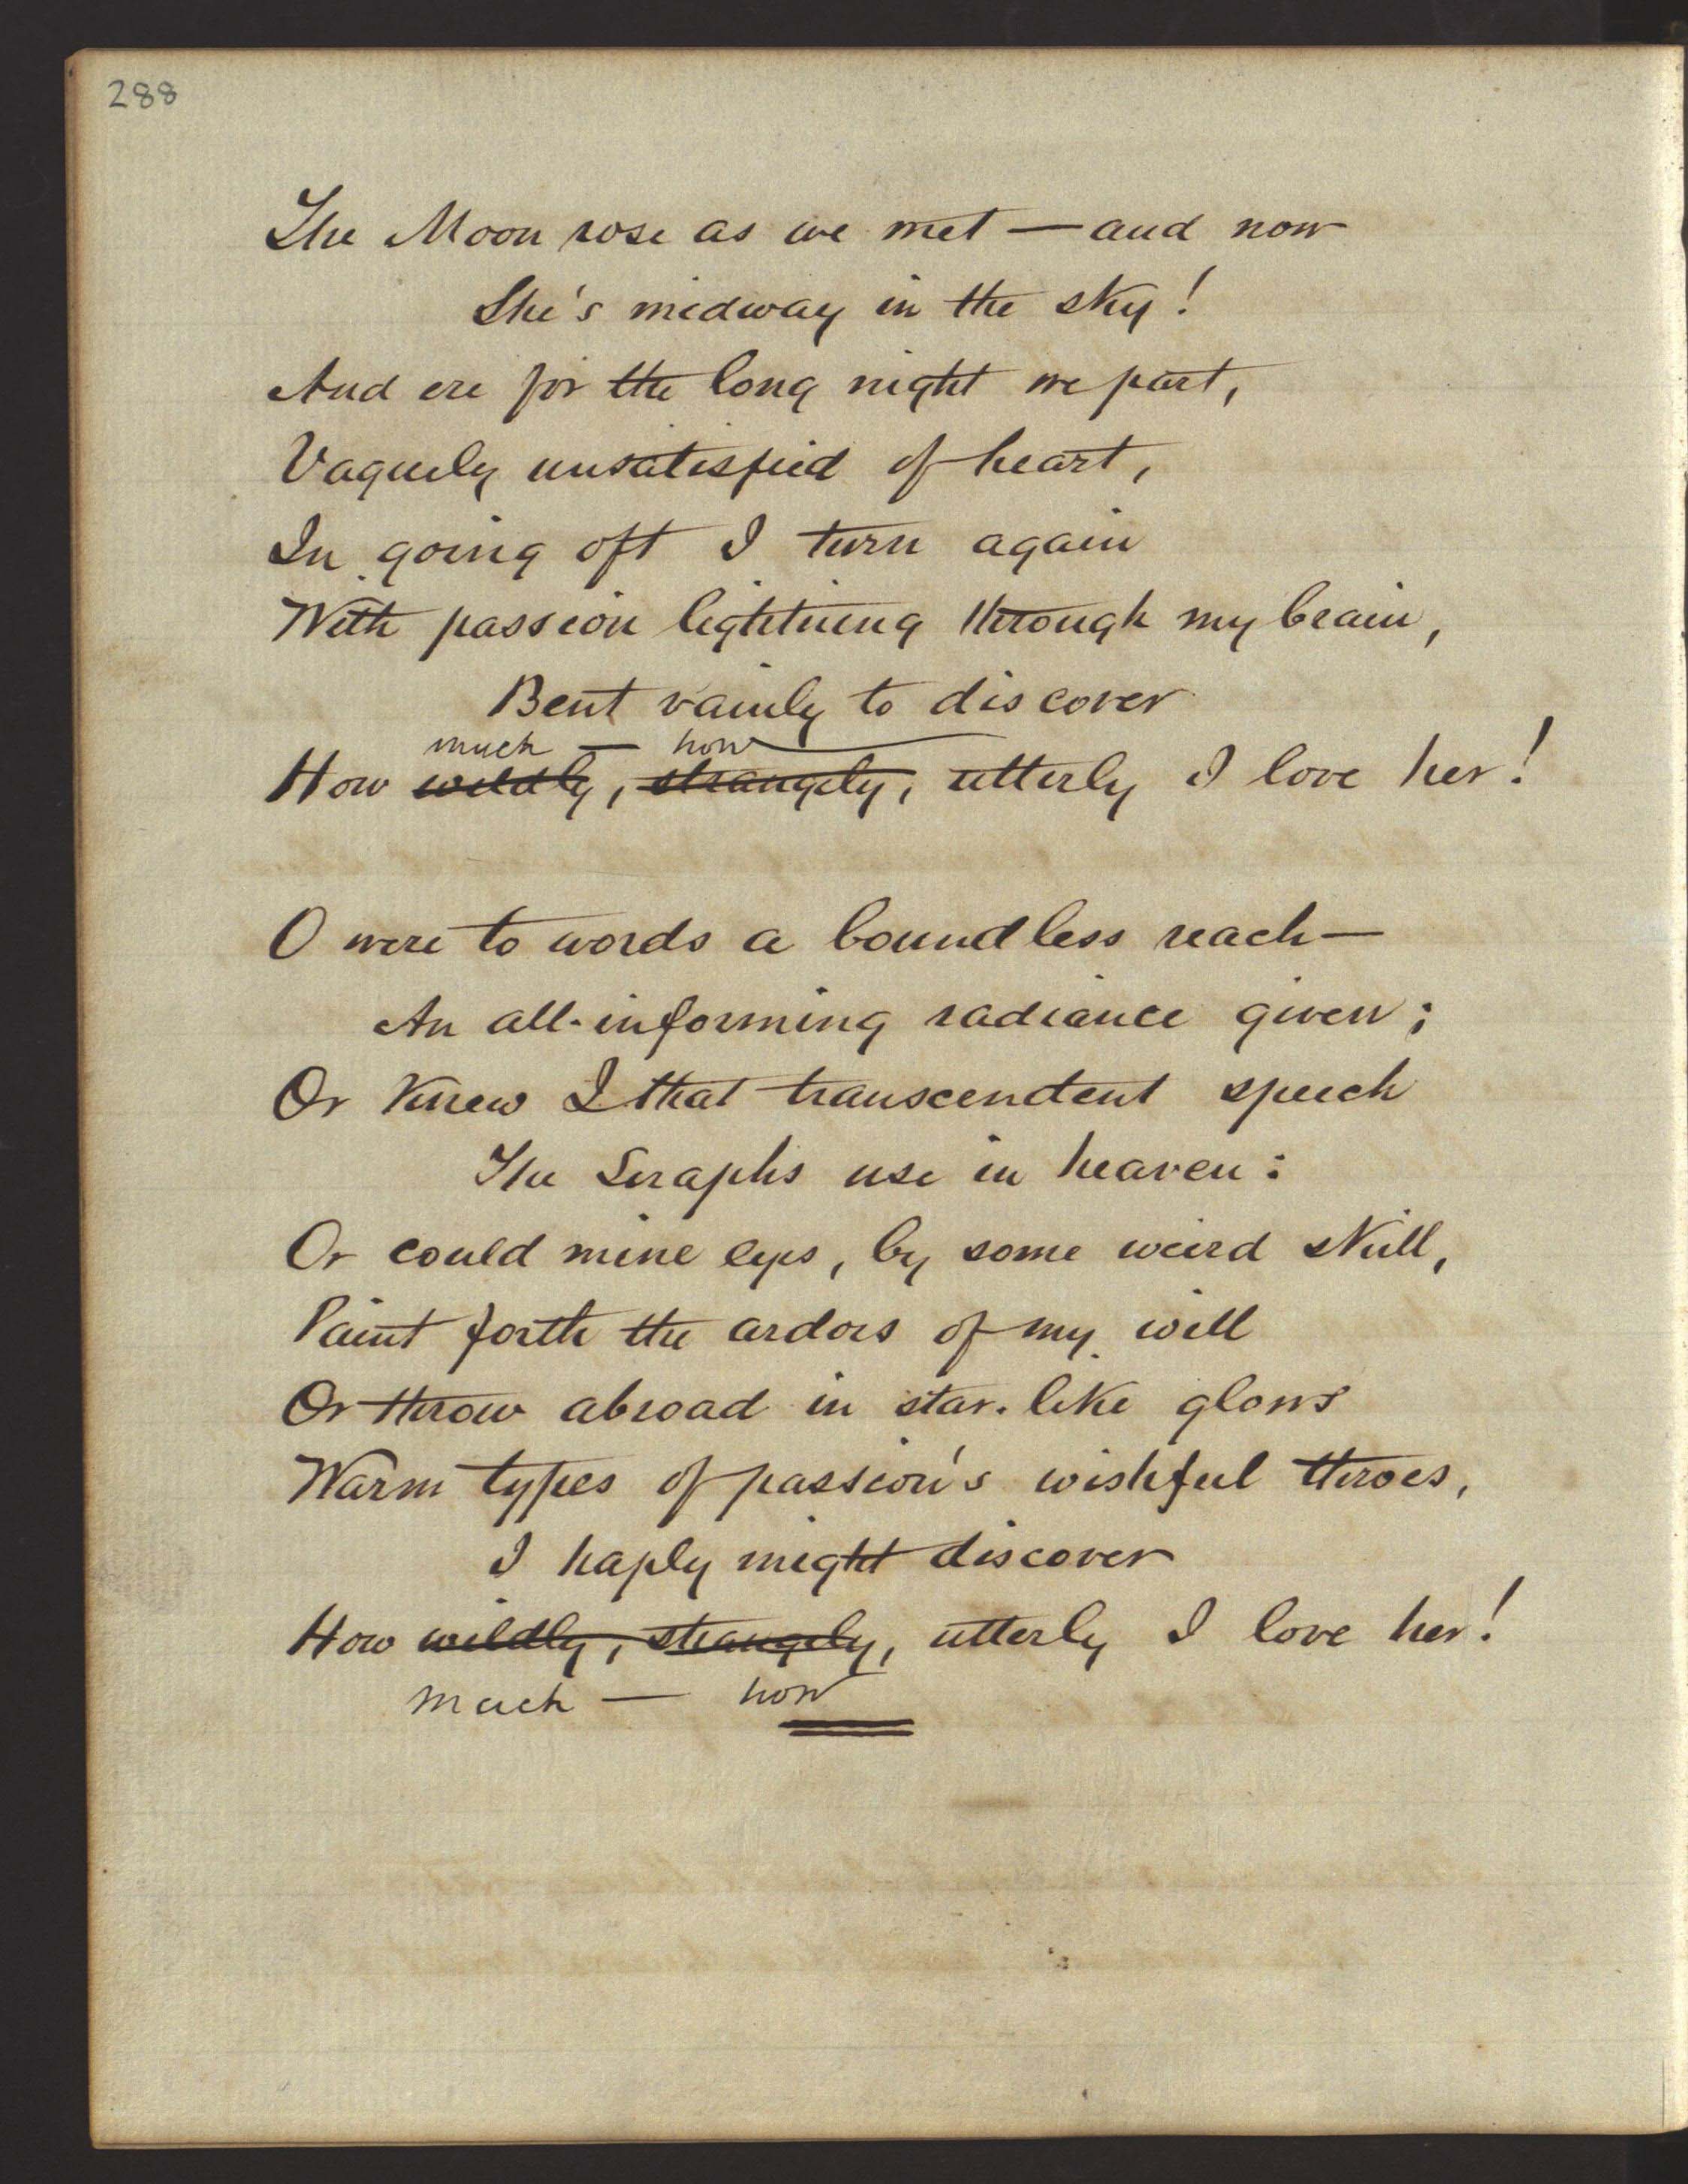 288
The Moon rose as we met — and now
She's midway in the sky!
And ere for the long night we part,
Vaguely unsatisfied of heart,
In going oft I turn again
With passion lightning through my brain,
Bent vainly to discover
much — how
How wildly, strangely, utterly I love her!
O were to words a boundless reach —
An all-informing radiance given;
Or knew I that transcendent speech
The Seraphs use in heaven:
Or could mine eyes, by some weird skill,
Paint forth the ardors of my will
Or throw abroad in star-like glows
Warm types of passion's wishful throes,
I haply might discover
How wildly, strangely, utterly I love her!
much — how